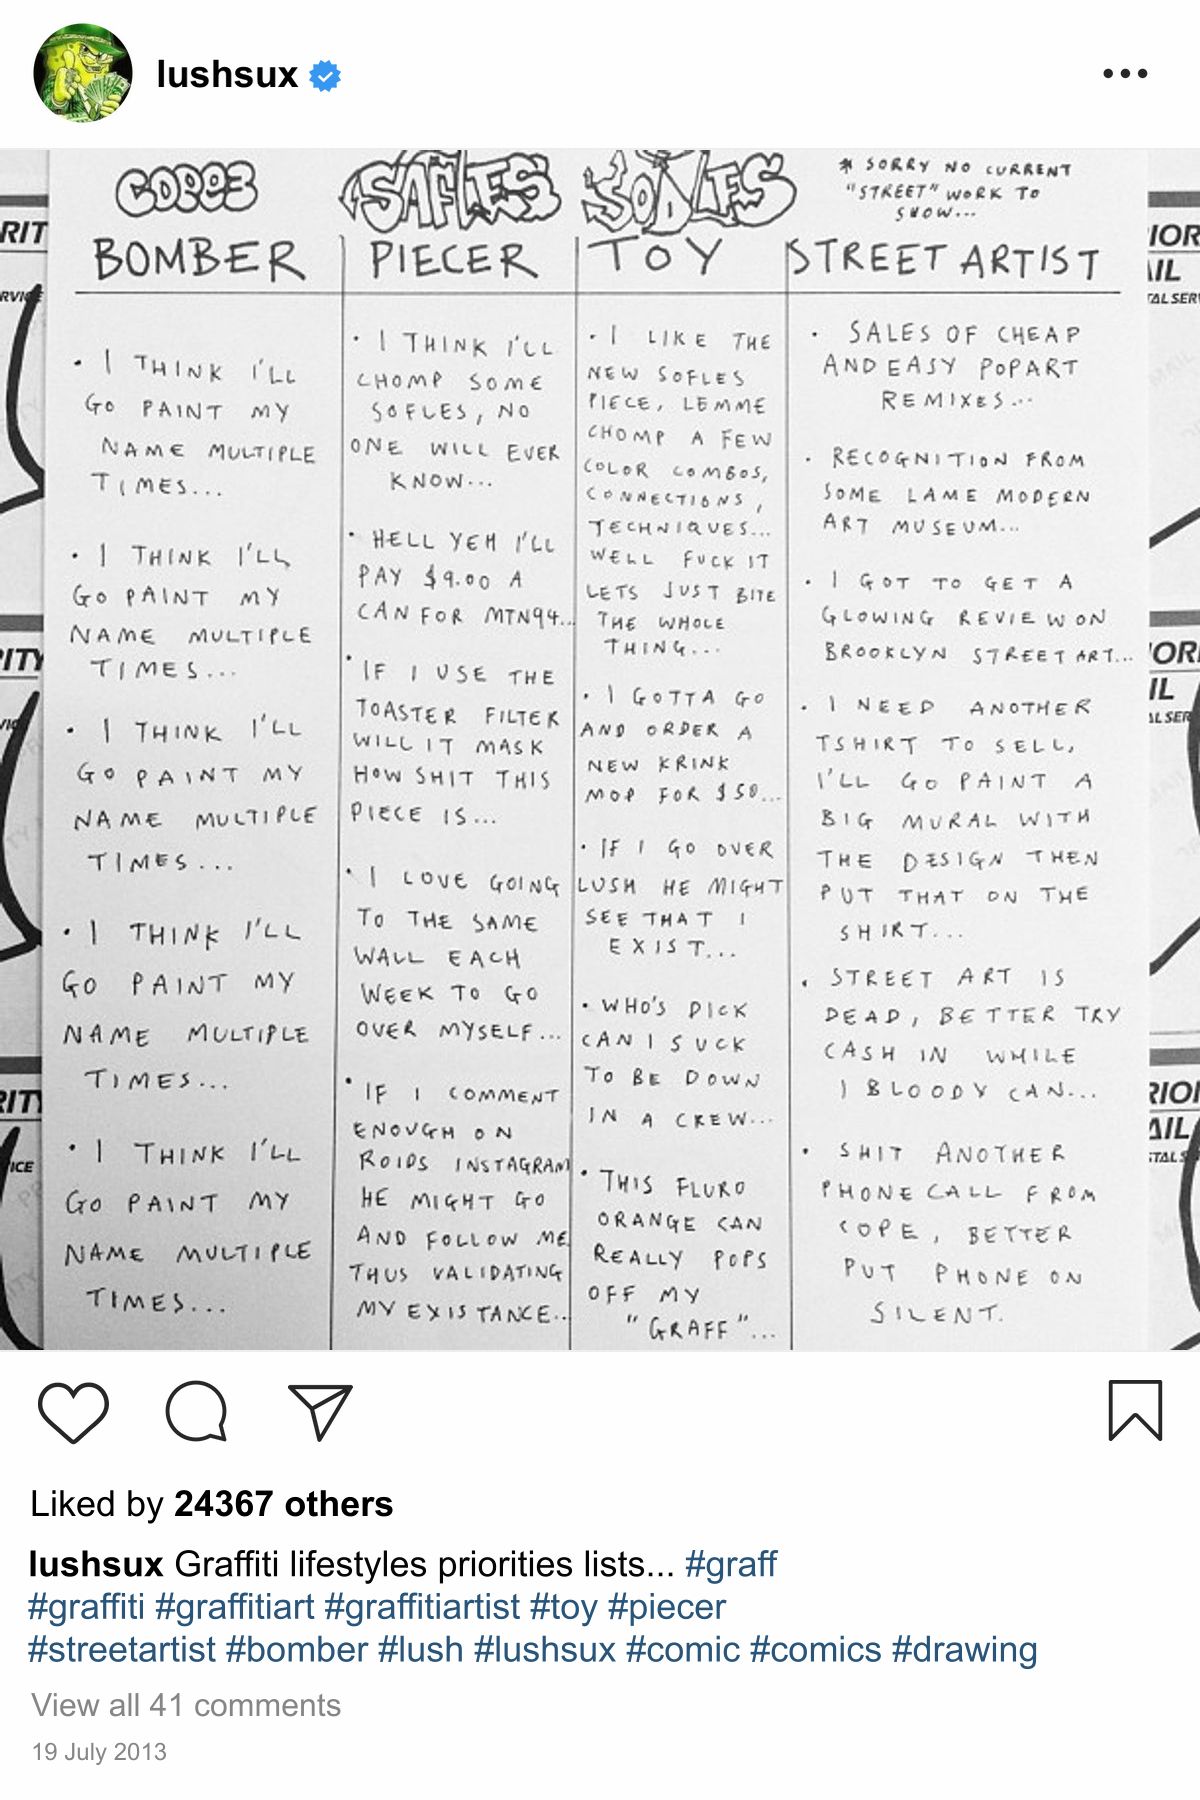 lushsux
COPE3
SAFLES
SODLES
* SORRY NO CURRENT
"STREET" WORK TO
SHOW...
BOMBER
PIECER
TOY
STREET ARTIST
· I THINK I'LL
GO PAINT MY
NAME MULTIPLE
TIMES...
· I THINK I'LL
GO PAINT MY
NAME MULTIPLE
TIMES...
· I THINK I'LL
GO PAINT MY
NAME MULTIPLE
TIMES...
· I THINK I'LL
GO PAINT MY
NAME MULTIPLE
TIMES...
· I THINK I'LL
GO PAINT MY
NAME MULTIPLE
TIMES...
· I THINK I'LL
CHOMP SOME
SOFLES, NO
ONE WILL EVER
KNOW...
· HELL YEH I'LL
PAY $9.00 A
CAN FOR MTN94...
· IF I USE THE
TOASTER FILTER
WILL IT MASK
HOW SHIT THIS
PIECE IS...
· I LOVE GOING
TO THE SAME
WALL EACH
WEEK TO GO
OVER MYSELF...
· IF I COMMENT
ENOUGH ON
ROIDS INSTAGRAM
HE MIGHT GO
AND FOLLOW ME
THUS VALIDATING
MY EXISTANCE...
· I LIKE THE
NEW SOFLES
PIECE, LEMME
CHOMP A FEW
COLOR COMBOS,
CONNECTIONS,
TECHNIQUES...
WELL FUCK IT
LETS JUST BITE
THE WHOLE
THING...
· I GOTTA GO
AND ORDER A
NEW KRINK
MOP FOR $50...
· IF I GO OVER
LUSH HE MIGHT
SEE THAT I
EXIST...
· WHO'S DICK
CAN I SUCK
TO BE DOWN
IN A CREW...
· THIS FLURO
ORANGE CAN
REALLY POPS
OFF MY
"GRAFF"...
· SALES OF CHEAP
AND EASY POPART
REMIXES...
· RECOGNITION FROM
SOME LAME MODERN
ART MUSEUM...
· I GOT TO GET A
GLOWING REVIEW ON
BROOKLYN STREET ART...
· I NEED ANOTHER
TSHIRT TO SELL,
I'LL GO PAINT A
BIG MURAL WITH
THE DESIGN THEN
PUT THAT ON THE
SHIRT...
· STREET ART IS
DEAD, BETTER TRY
CASH IN WHILE
I BLOODY CAN...
· SHIT ANOTHER
PHONE CALL FROM
COPE, BETTER
PUT PHONE ON
SILENT.
Liked by 24367 others
lushsux Graffiti lifestyles priorities lists... #graff
#graffiti #graffitiart #graffitiartist #toy #piecer
#streetartist #bomber #lush #lushsux #comic #comics #drawing
View all 41 comments
19 July 2013